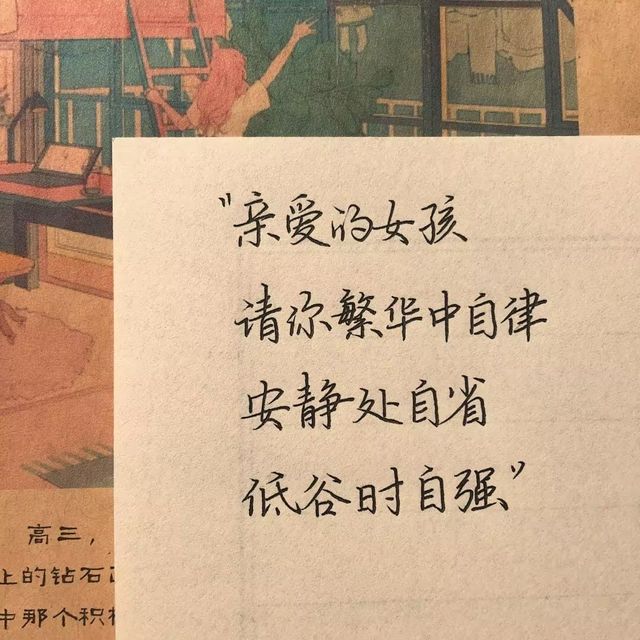 "亲爱的女孩
请你繁华中自律
安静处自省
低谷时自强"
高三，
上的钻石
中那个积